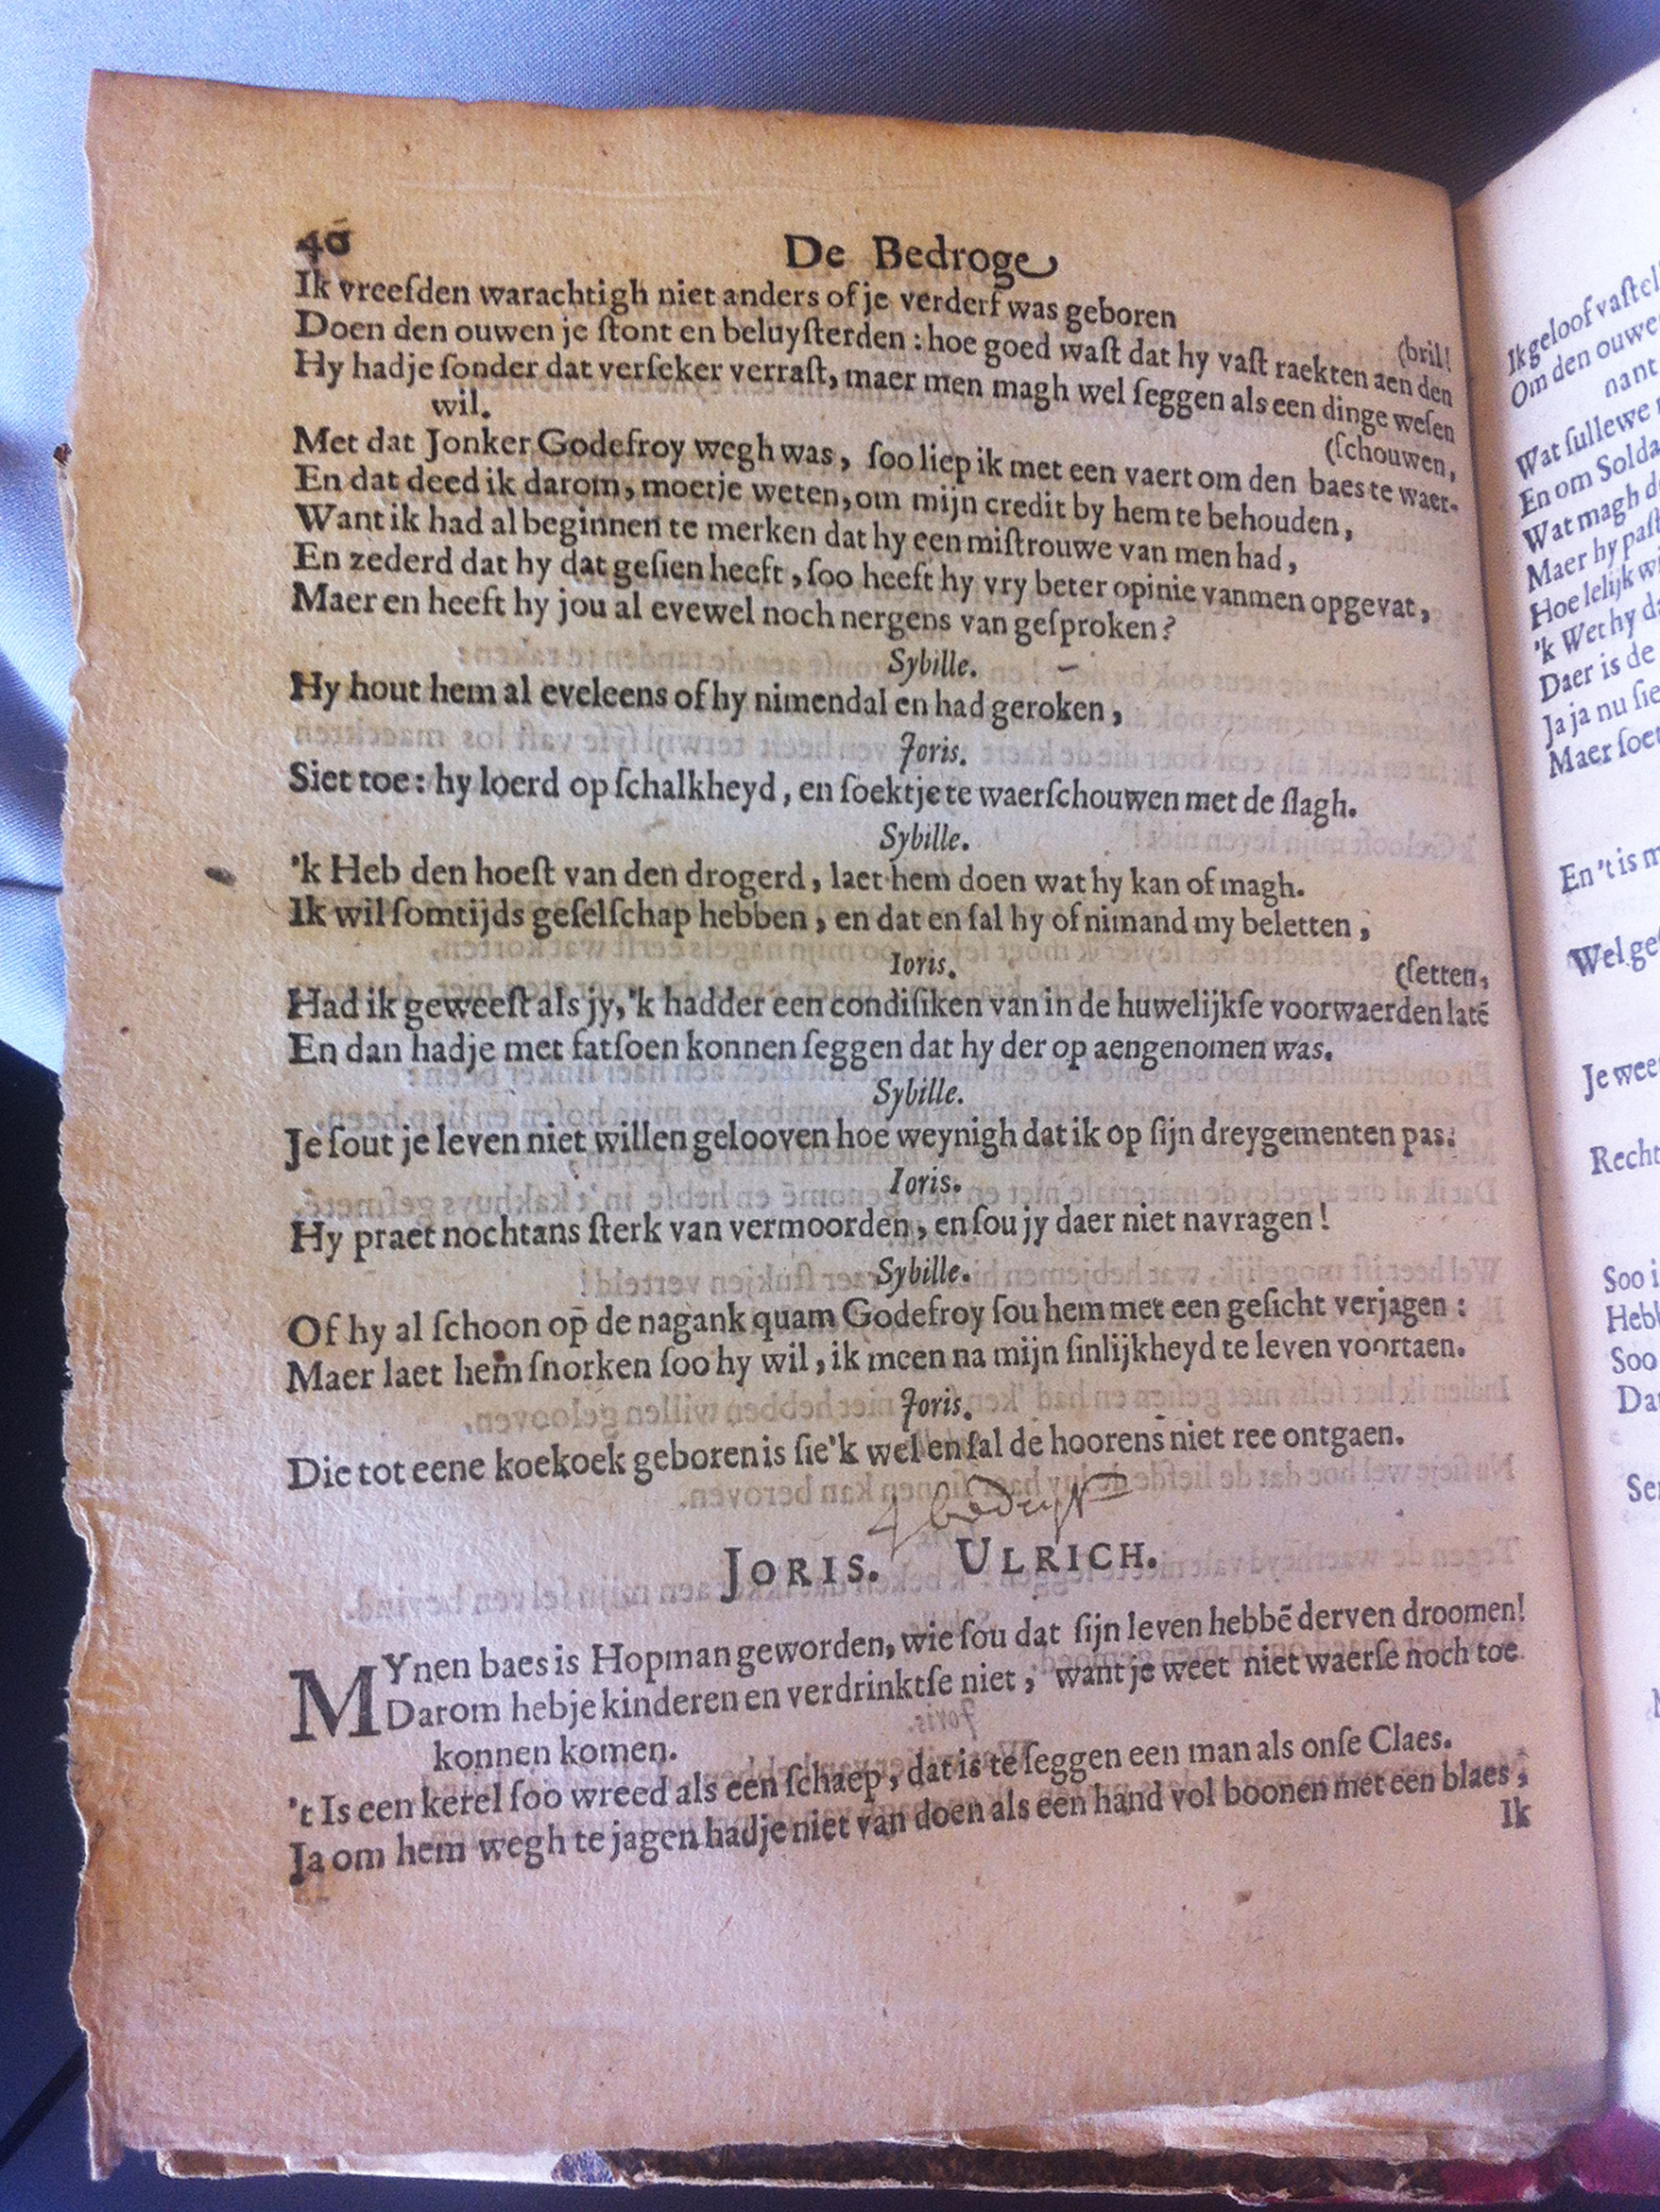 40 De Bedroge
Ik vreeſden warachtigh niet anders of je verderf was geboren
(bril!
Doen den ouwen je ſtont en beluyſterden : hoe goed waſt dat hy vaſt raekten aen den
Hy hadje ſonder dat verſeker verraſt, maer men magh wel ſeggen als een dinge weſen
wil.
(ſchouwen,
Met dat Jonker Godefroy wegh was, ſoo liep ik met een vaert om den baes te waer-
En dat deed ik darom, moetje weten, om mijn credit by hem te behouden,
Want ik had al beginnen te merken dat hy een miſtrouwe van men had,
En zederd dat hy dat geſien heeft, ſoo heeft hy vry beter opinie van men opgevat,
Maer en heeft hy jou al evewel noch nergens van geſproken?
Sybille.
Hy hout hem al eveleens of hy nimendal en had geroken,
Joris.
Siet toe: hy loerd op ſchalkheyd, en ſoektje te waerſchouwen met de ſlagh.
Sybille.
'k Heb den hoeſt van den drogerd, laet hem doen wat hy kan of magh.
Ik wil ſomtijds geſelſchap hebben, en dat en ſal hy of nimand my beletten,
Ioris.
(ſetten,
Had ik geweeſt als jy, 'k hadder een condiſiken van in de huwelijkſe voorwaerden latē
En dan hadje met fatſoen konnen ſeggen dat hy der op aengenomen was.
Sybille.
Je ſout je leven niet willen gelooven hoe weynigh dat ik op ſijn dreygementen pas.
Ioris.
Hy praet nochtans ſterk van vermoorden, en ſou jy daer niet navragen!
Sybille.
Of hy al ſchoon op de nagank quam Godefroy ſou hem met een geſicht verjagen :
Maer laet hem ſnorken ſoo hy wil, ik meen na mijn ſinlijkheyd te leven voortaen.
Joris.
Die tot eene koekoek geboren is ſie'k wel en ſal de hoorens niet ree ontgaen.
4 bedryf
JORIS. ULRICH.
MYnen baes is Hopman geworden, wie ſou dat ſijn leven hebbē derven droomen!
Darom hebje kinderen en verdrinktſe niet, want je weet niet waerſe noch toe
konnen komen.
't Is een kerel ſoo wreed als een ſchaep, dat is te ſeggen een man als onſe Claes.
Ja om hem wegh te jagen hadje niet van doen als een hand vol boonen met een blaes,
Ik
Ik geloof vaſtel
Om den ouwe
nant
Wat ſullewe
En om Solda
Wat magh d
Maer hy paſt
Hoe lelijk wi
'k Wet hy da
Daer is de
Ja ja nu ſie
Maer ſoet
En 't is m
Wel geſ
Je weet
Recht
Soo i
Hebb
Soo
Dat
Ser